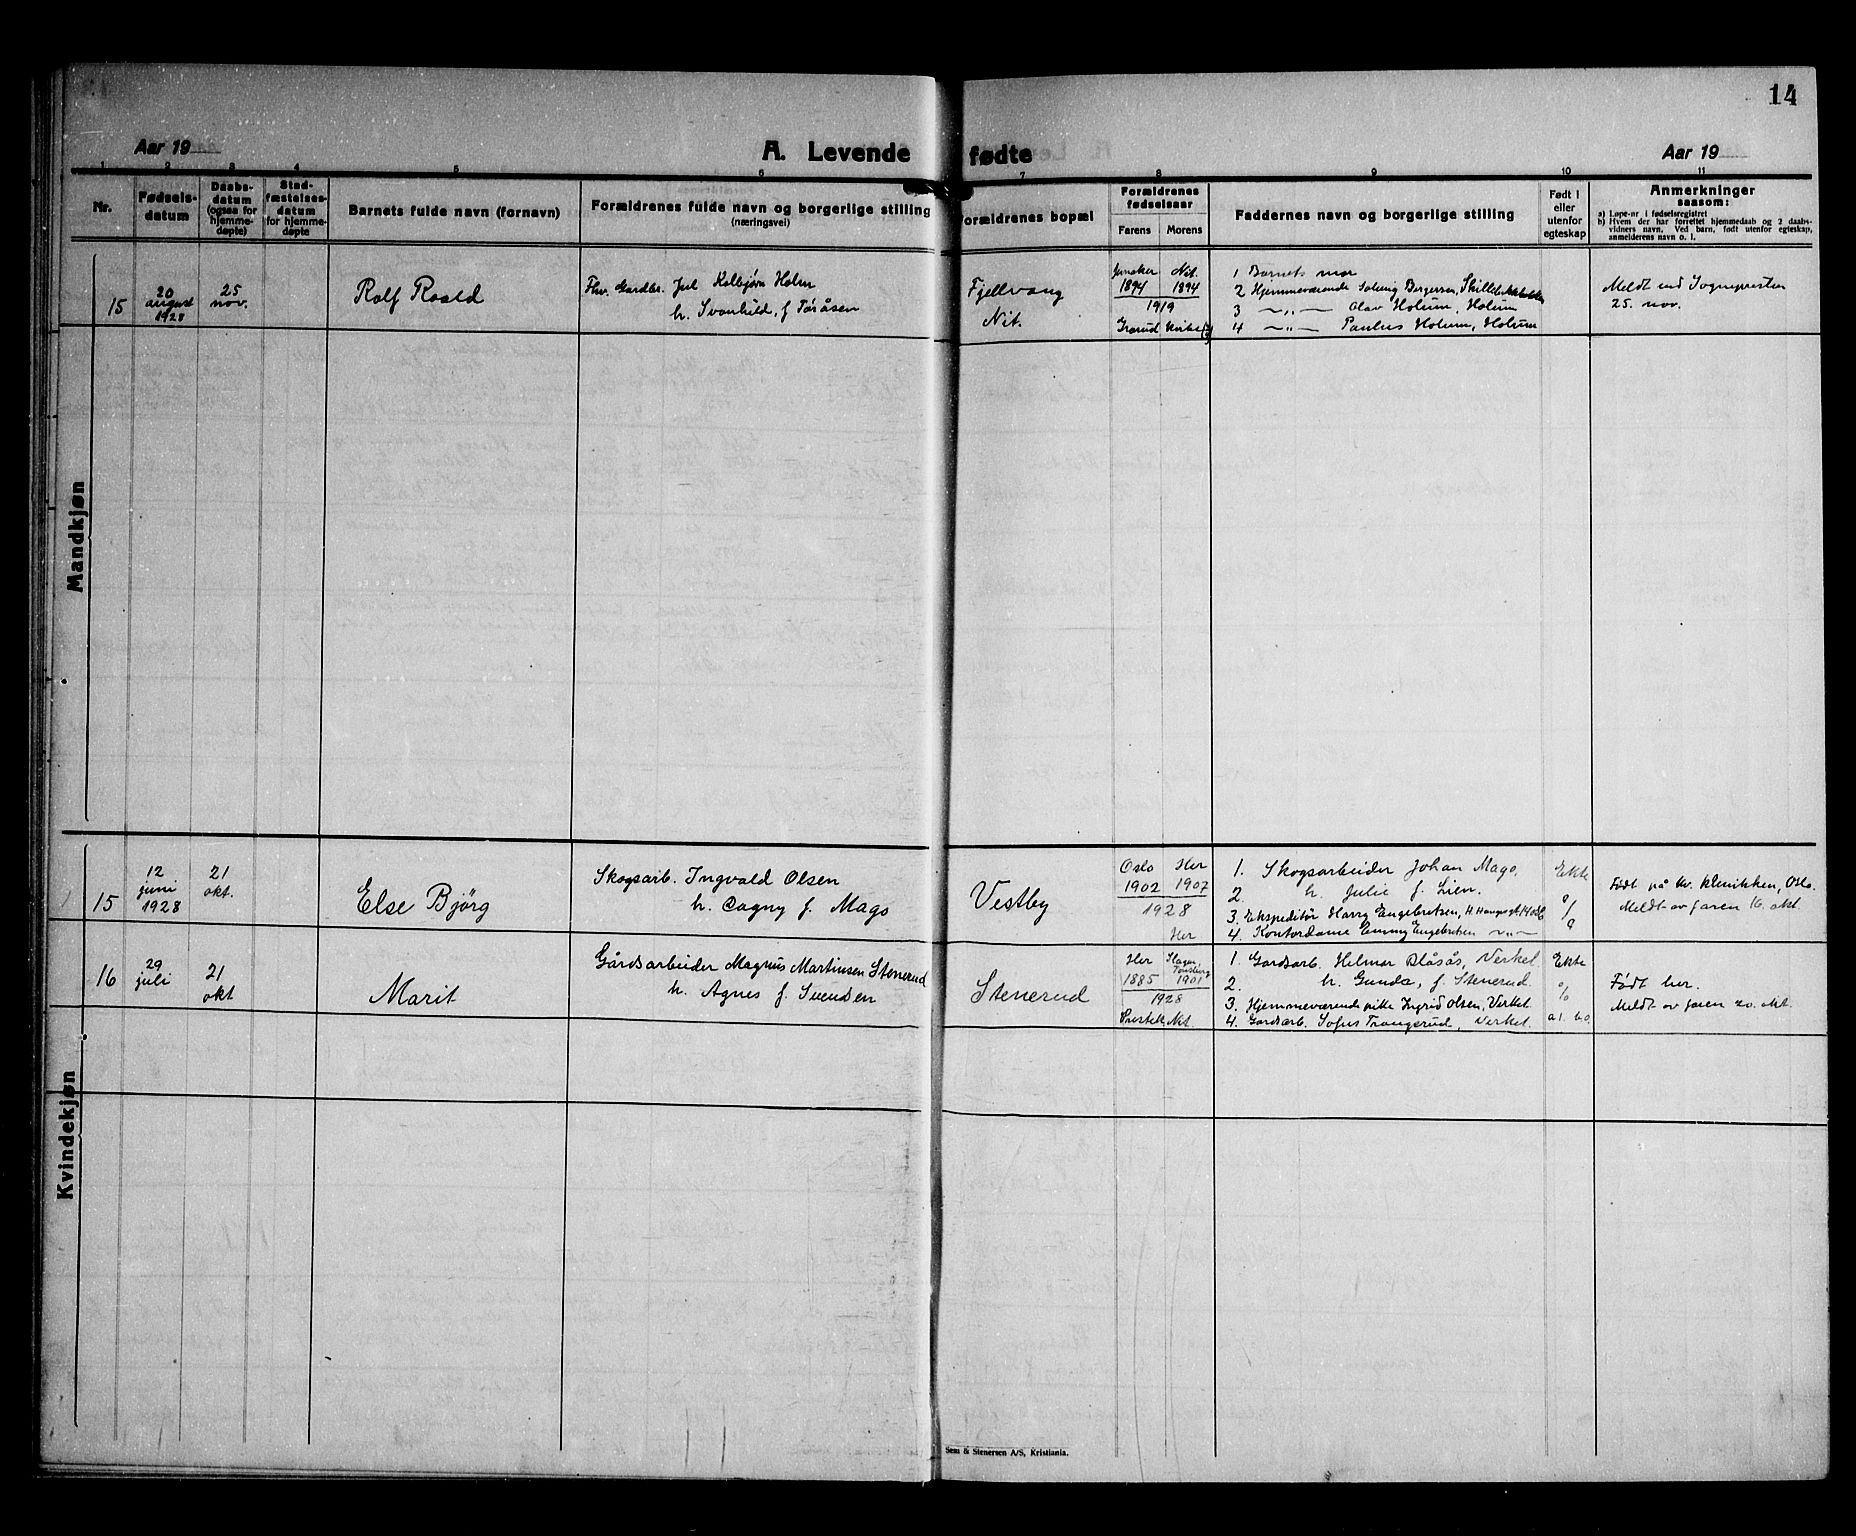 14
Aar 19
A. Levende fødte
Aar 19
1 2 3 4 5 6 7 8 9 10 11
Nr.
Fødsels-
datum
Daabs-
datum
(ogsaa for
hjemme-
døpte)
Stad-
fæstelses-
datum
for hjemme-
døpte
Barnets fulde navn (fornavn)
Forældrenes fulde navn og borgerlige stilling
(næringsvei)
Forældrenes bopæl
Forældrenes
fødselsaar
Farens Morens
Faddernes navn og borgerlige stilling
Født i
eller
utenfor
egteskap
Anmerkninger
saasom:
a) Løpe-nr i fødselsregistret
b) Hvem der har forrettet hjemmedaab og 2 daabs-
vidners navn. Ved barn, født utenfor egteskap,
anmelderens navn o. l.
Mandkjøn
15
20
august
1928
25
nov.
Rolf Roald
Kolbjørn Holm
h. Svanhild, f. Toråsen
Fjellvang
Nit.
Nit.
1894 1894
1919
1 Barnets mor
2 Hjemmeværende Solveig Bergersen,
3 -"- Olav Holum, Holum
4 -"- Paulus Holum, Holum
Meldt ved Sognepresten
25. nov.
Kvindekjøn
15
12
juni
1928
21
okt.
Else Bjørg
Skogsarb. Ingvald Olsen
h. Dagny f. Mago
Vestby
Oslo Her
1902 1907
1928
Her
1. Skogsarbeider Johan Mago.
2. h. Julie f. Lien.
3. Ekspeditør Harry Engebretsen,
4. Kontordame Emmy Engebretsen -"-
Ekte
Født på kv. klinikken, Oslo.
Meldt av faren 16. okt.
16
29
juli
21
okt
Marit
Gårdsarbeider Magnus Martinsen Stenerud
h. Agnes f. Svendsen
Stenerud
Her
Tønsberg
1885 1901
1928
Nit.
1. Gårdsarb. Helmar Blåsås, Verket
2. h. Gunda, f. Stenerud.
3. Hjemmeværende pike Ingrid Olsen, Verket.
4. Gårdsarb. Sofus Trangsrud, Verket.
Ekte
Født her.
Meldt av faren 20. okt.
Sem & Stenersen A/S, Kristiania.